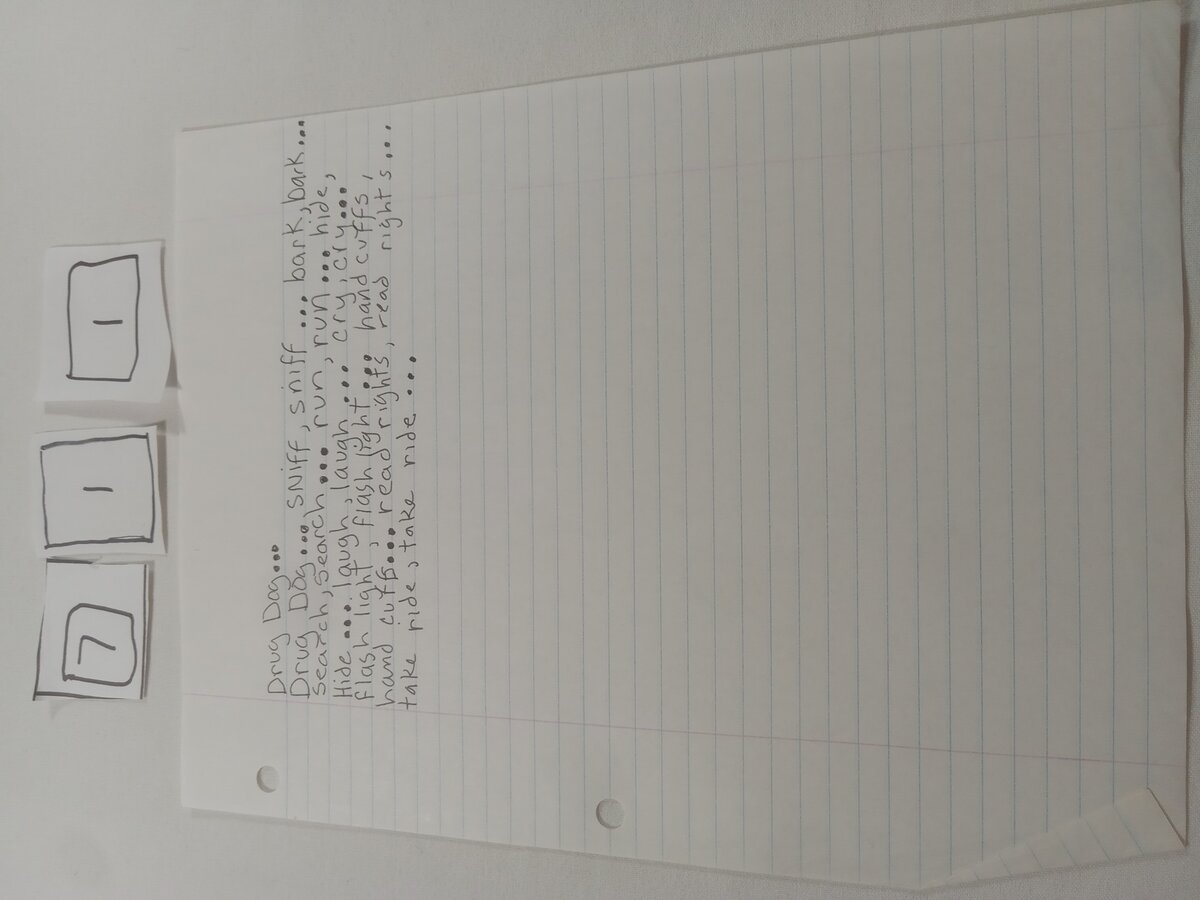 7 1 1
Drug Dog...
Drug Dog... sniff, sniff ... bark, bark...
search, search... run, run ... hide,
Hide .... laugh, laugh ... cry, cry...
flash light, flash light ... hand cuffs,
hand cuffs... read rights, read right s...
take ride, take ride ...